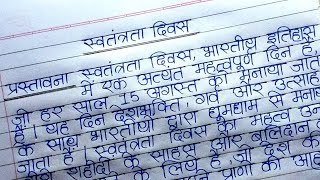 स्वतंत्रता दिवस
प्रस्तावना स्वतंत्रता दिवस, भारतीय इतिहास
में एक अत्यंत महत्वपूर्ण दिन है,
जो हर साल 15 अगस्त को मनाया जाता
है। यह दिन देशभक्ति, गर्व और उत्साह
के साथ भारतीयों द्वारा धूमधाम से मनाया
जाता है। स्वतंत्रता दिवस का महत्व उन
शहीदों के साहस और बलिदान
के लिये है, जो देश की
प्राणों की